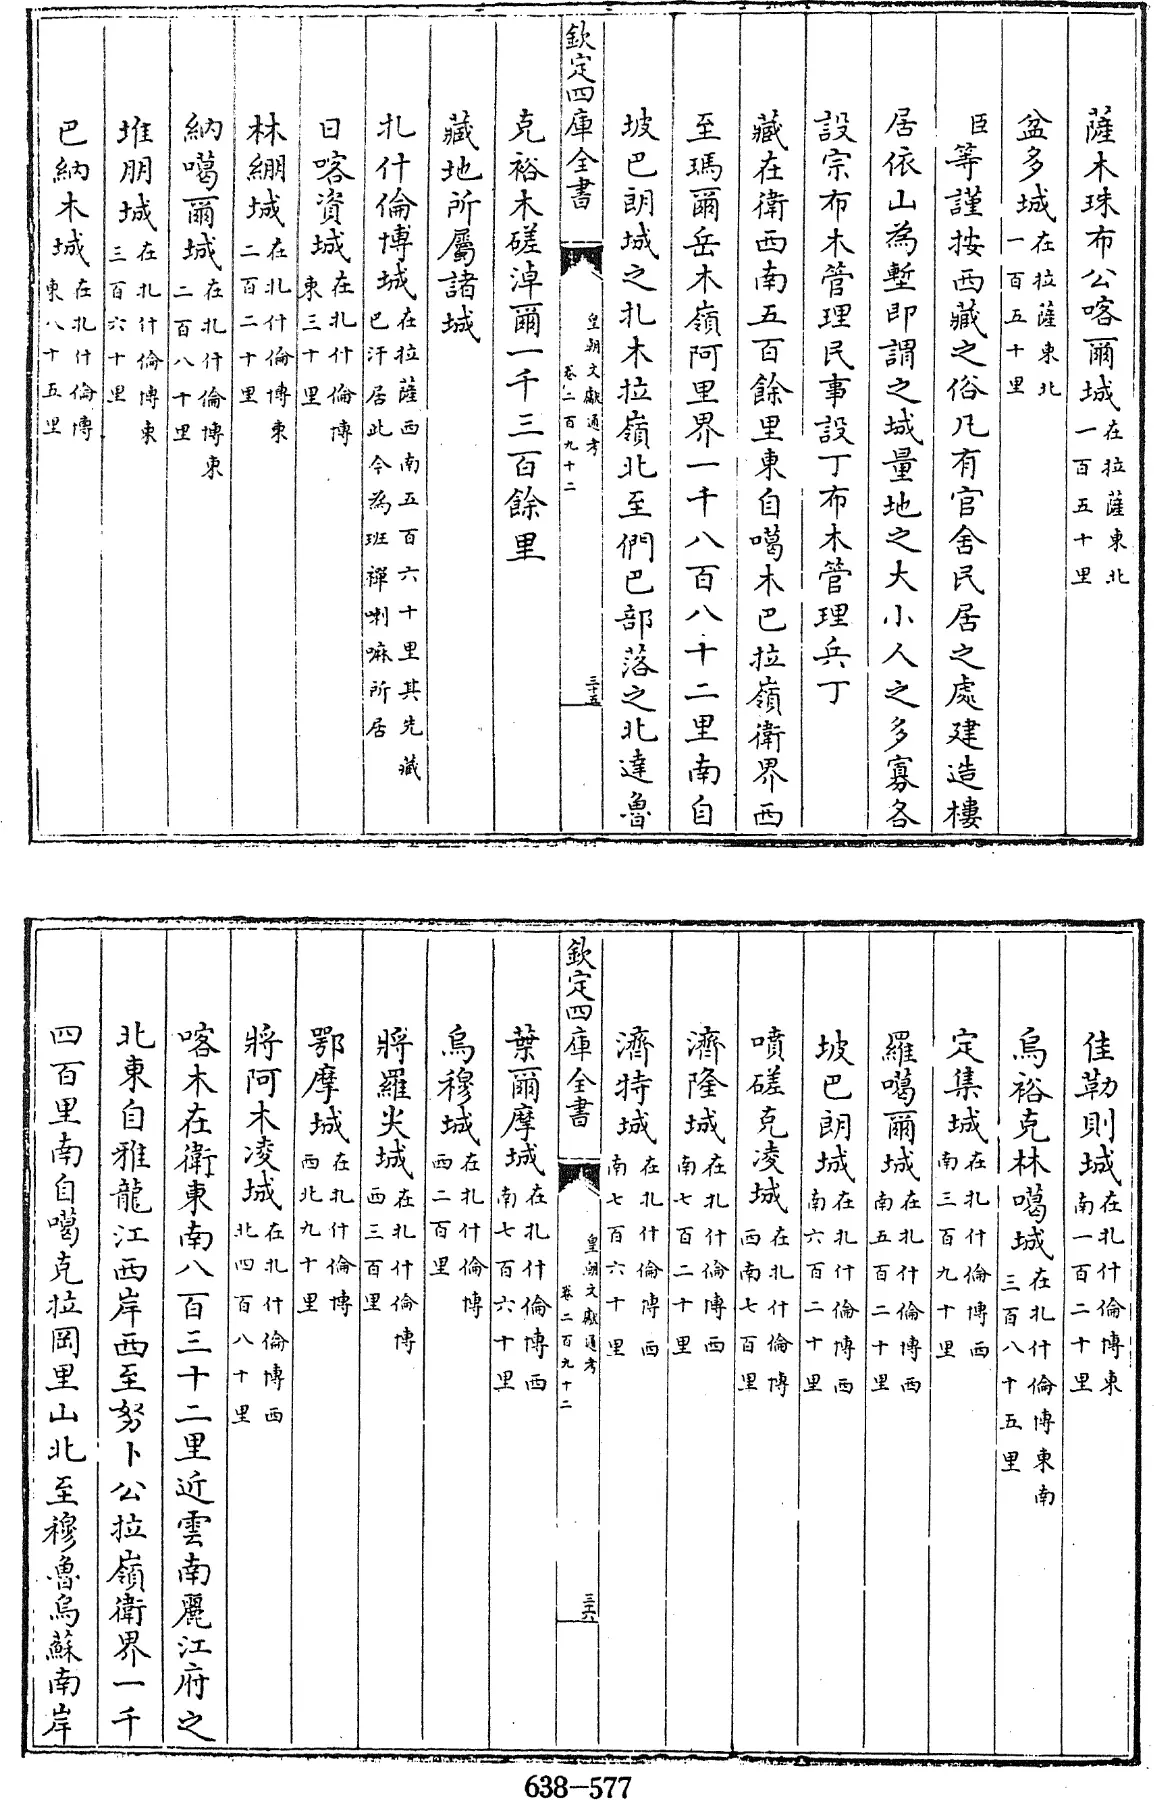 薩木珠布公喀爾城在拉薩東北一百五十里
盆多城在拉薩東北一百五十里
臣等謹按西藏之俗凡有官舍民居之處建造樓
居依山為塹即謂之城量地之大小人之多寡各
設宗布木管理民事設丁布木管理兵丁
藏在衛西南五百餘里東自噶木巴拉嶺衛界西
至瑪爾岳木嶺阿里界一千八百八十二里南自
坡巴朗城之扎木拉嶺北至們巴部落之北達魯
欽定四庫全書
皇朝文獻通考
卷二百九十二
三十五
克裕木磋淖爾一千三百餘里
藏地所屬諸城
扎什倫博城在拉薩西南五百六十里其先藏巴汗居此今為班禪喇嘛所居
日喀資城在扎什倫博東三十里
林綳城在扎什倫博東二百二十里
納噶爾城在扎什倫博東二百八十里
堆朋城在扎什倫博東三百六十里
巴納木城在扎什倫博東八十五里
佳勒則城在扎什倫博東南一百二十里
烏裕克林噶城在扎什倫博東南三百八十五里
定集城在扎什倫博西南三百九十里
羅噶爾城在扎什倫博西南五百二十里
坡巴朗城在扎什倫博西南六百二十里
噴磋克凌城在扎什倫博西南七百里
濟隆城在扎什倫博西南七百二十里
濟特城在扎什倫博西南七百六十里
欽定四庫全書
皇朝文獻通考
卷二百九十二
三十六
葉爾摩城在扎什倫博西南七百六十里
烏穆城在扎什倫博西二百里
將羅尖城在扎什倫博西三百里
鄂摩城在扎什倫博西北九十里
將阿木凌城在扎什倫博西北四百八十里
喀木在衛東南八百三十二里近雲南麗江府之
北東自雅龍江西岸西至努卜公拉嶺衛界一千
四百里南自噶克拉岡里山北至穆魯烏蘇南岸
638-577